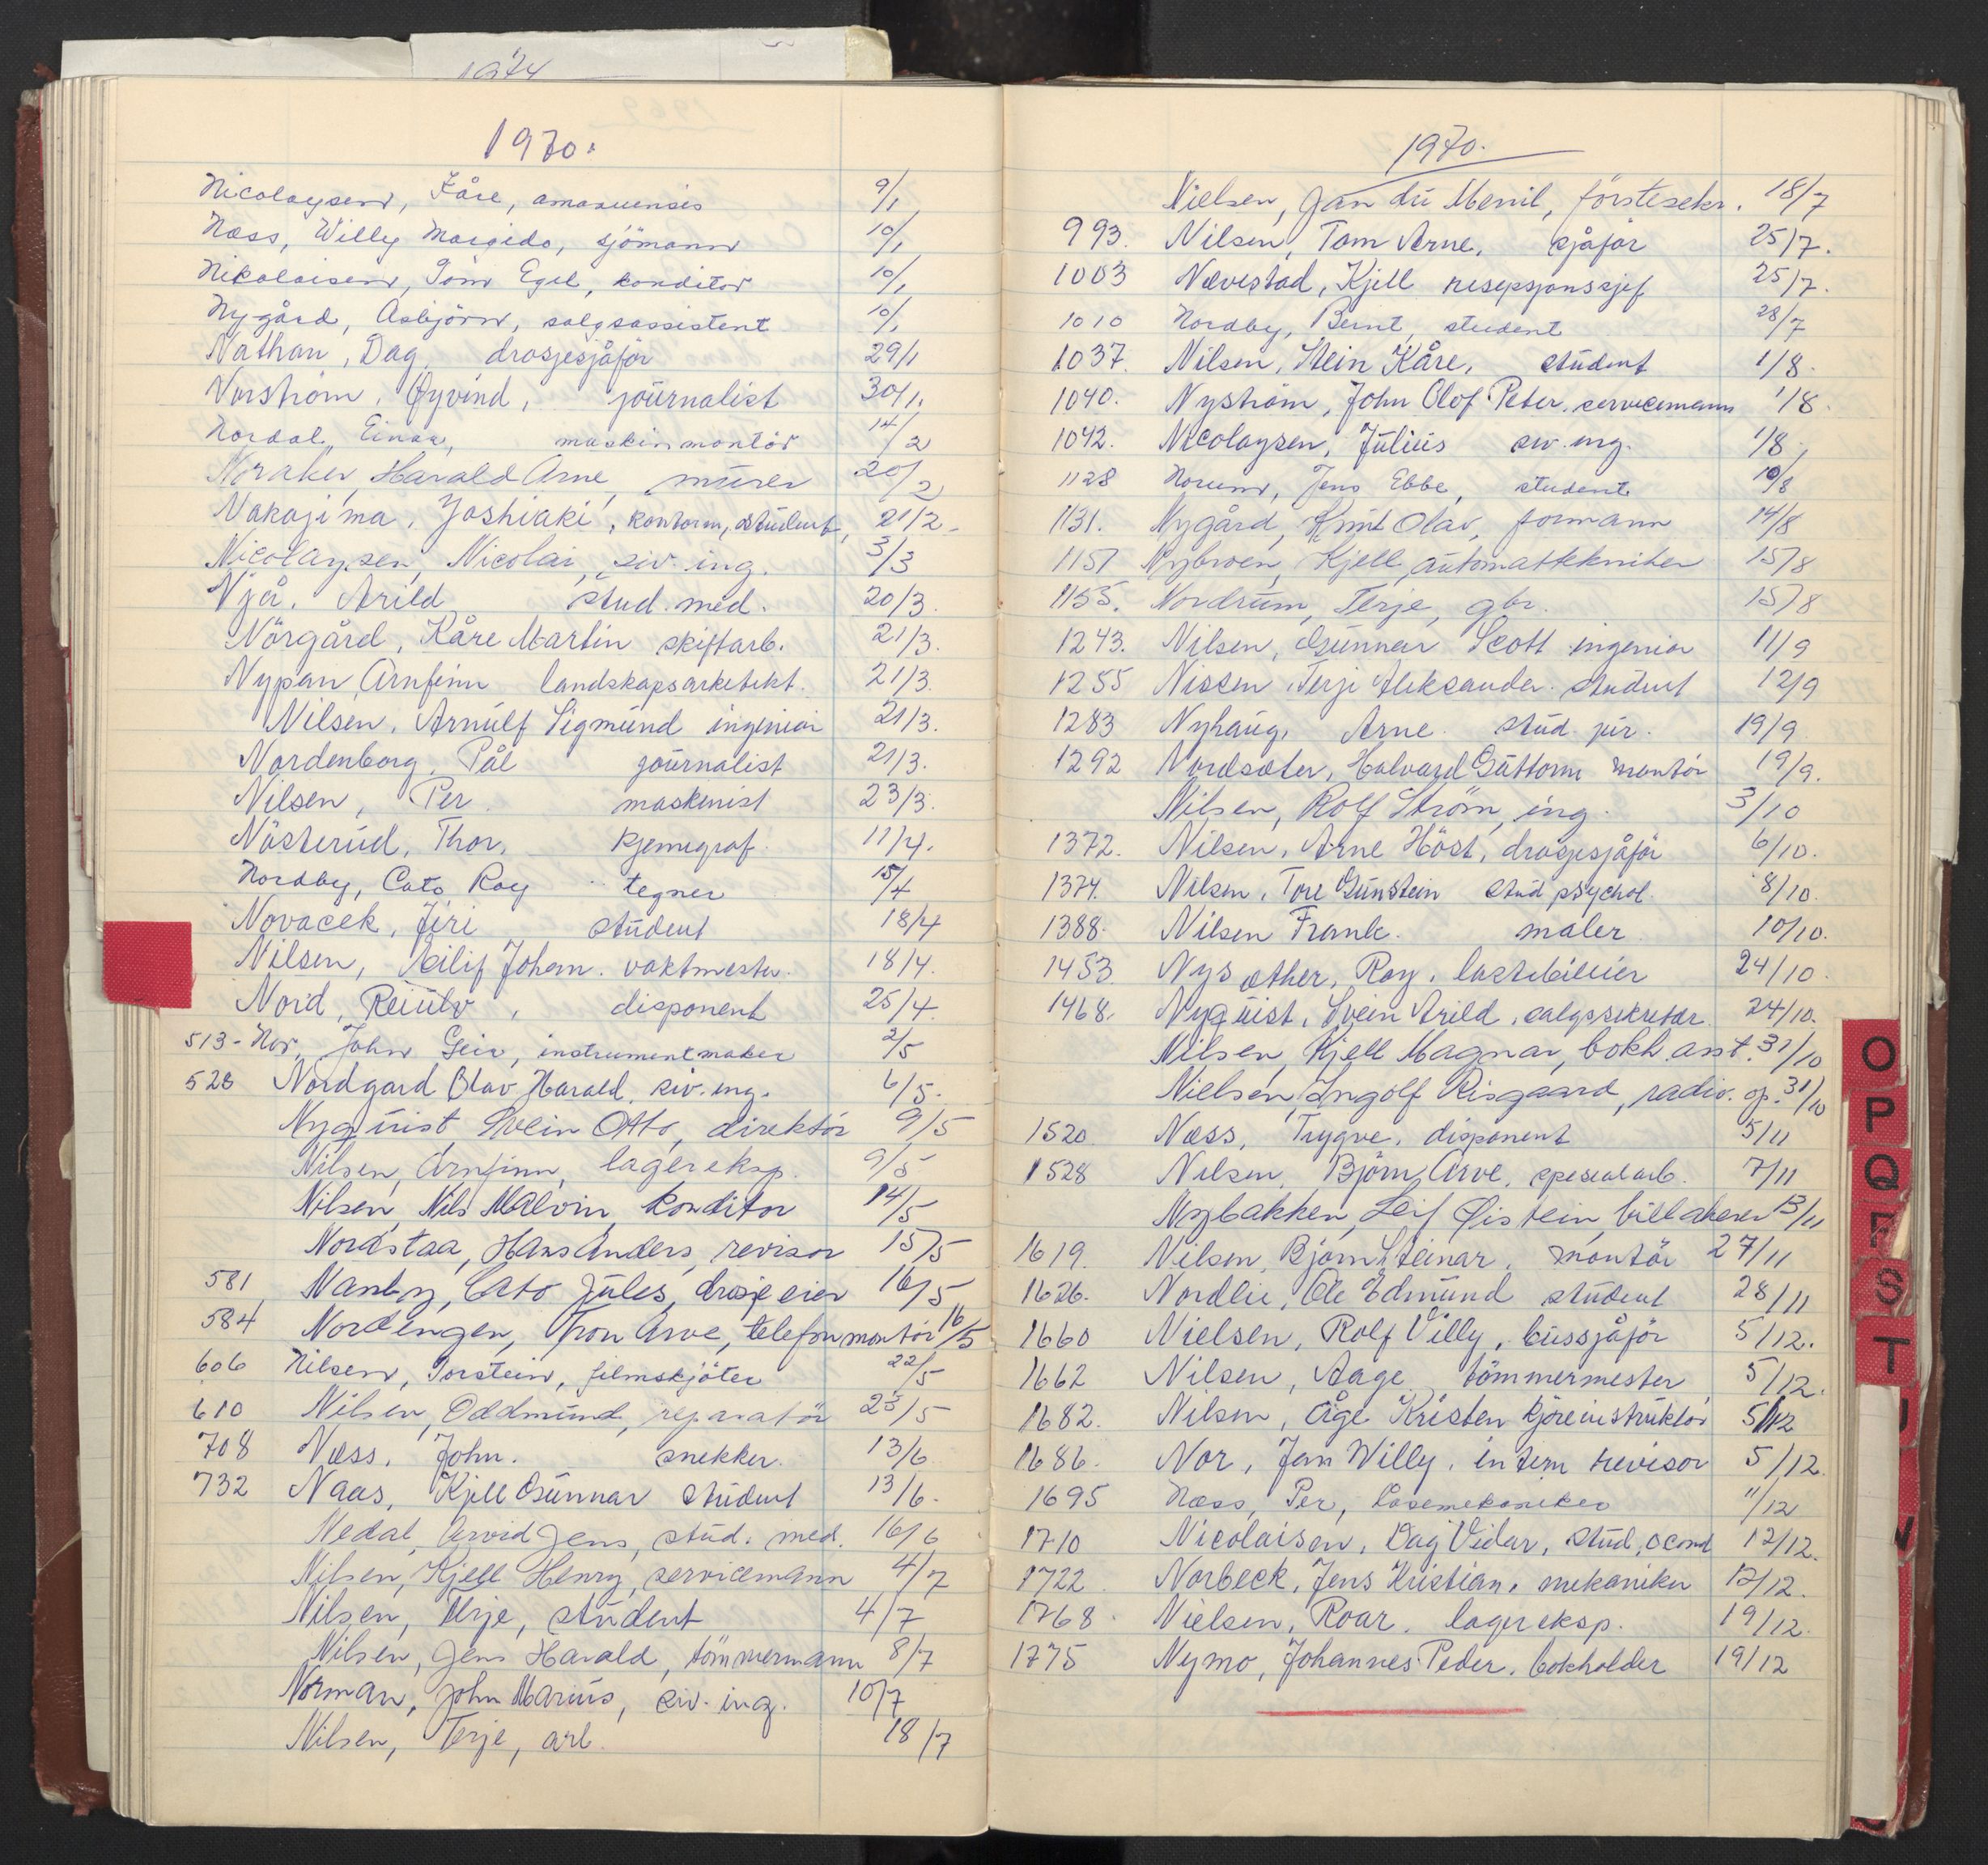 1974
1970.
Nicolaysen, Kåre, amanuensis 9/1
Næss, Willy Margido, sjömann 10/1
Nikolaisen, Tom Egil, konditor 10/1
Nygård, Asbjörn, salgsassistent 10/1
Nathan, Dag, drosjesjåfør 29/1
Norström, Øyvind, journalist 30/1.
Nordal, Einar, maskinmontör 14/2
Noraker, Harald Arne, murer 20/2
Nakajima, Yoshiaki, kontorm, student, 21/2-
Nicolaysen, Nicolai, siv. ing. 3/3
Njå, Arild stud. med. 20/3.
Nörgård, Kåre Martin skiftarb. 21/3.
Nypan, Arnfinn landskapsarkitekt. 21/3.
Nilsen, Arnulf Sigmund ingeniør 21/3.
Nordenborg, Pål journalist 21/3.
Nilsen, Per maskinist 23/3.
Nösterud, Thor, kjemigraf. 11/4.
Nordby, Cato Roy tegner 15/4
Novacek, Jiri student 18/4
Nilsen, Eilif Johan. vaktmester. 18/4.
Nord, Reiulv, disponent 25/4.
513- Nor, John Geir, instrumentmaker 2/5
528 Nordgard Olav Harald, siv. ing. 6/5.
Nyquist, Svein Otto, direktör 9/5
Nilsen, Arnfinn, lagereksp. 9/5
Nilsen, Nils Malvin, konditor 14/5
Nordstaa, Hans Anders, revisor 15/5
581 Nanby, Cato Jules, drosjeeier 16/5
584 Nordengen, Tron Arve, telefonmontör 16/5
606 Nilsen, Torstein, filmskjöter 22/5
610 Nilsen, Oddmund, reparatör 23/5
708 Næss, John. snekker. 13/6
732 Naas, Kjell Gunnar student 13/6.
Nedal, Arvid Jens, stud. med. 16/6
Nilsen, Kjell Henry, servicemann 4/7
Nilsen, Terje, student 4/7
Nilsen, Jens Harald, tömmermann 8/7
Norman, John Marius, siv. ing. 10/7
Nilsen, Terje, arb. 18/7
1970.
Nielsen, Jan du Menil, förstesekr. 18/7
993. Nilsen, Tom Arne, sjåför 25/7.
1003 Nævestad, Kjell resepsjonssjef 25/7.
1010 Nordby, Bernt, student 28/7
1037. Nilsen, Stein Kåre, student 1/8.
1040. Nyström, John Olof Peter, servicemann 1/8.
1042. Nicolaysen, Julius siv. ing. 1/8.
1128 Norum, Jens Ebbe, student 10/8
1131. Nygård, Knut Olav, formann 14/8
1151 Nybroen, Kjell, automattekniker 15/8
1155. Nordrum, Terje, gbr. 15/8
1243. Nilsen, Gunnar Scott ingeniør 11/9
1255 Nissen, Terje Aleksander. student 12/9
1283 Nyhaug, Arne. stud. jur. 19/9
1292 Nordsæter, Halvard Guttorm montör 19/9.
Nilsen, Rolf Ström, ing. 3/10
1372. Nilsen, Arne Höst, drosjesjåför 6/10.
1374. Nilsen, Tore Gunstein stud psychol. 8/10.
1388. Nilsen Frank. maler 10/10.
1453 Nysæther, Roy, lastebileier 24/10.
1468. Nyquist, Svein Arild, salgssekretær. 24/10.
Nilsen, Kjell Magnar, bokh. asst. 31/10
Nielsen, Ingolf Risgaard, radio. op. 31/10
1520 Næss, Trygve, disponent 5/11
1528 Nilsen, Björn Arve, spesialarb. 7/11
Nybakken, Leif Øistein, billakerer 13/11
1619. Nilsen, Bjørn Steinar, montör 27/11
1626. Nordlie, Ole Edmund student 28/11
1660 Nielsen, Rolf Villy, bussjåför 5/12.
1662 Nilsen, Aage tömmermester 5/12.
1682. Nilsen, Åge Kristen kjöreinstruktör 5/12
1686. Nor, Jan Willy, intern revisor 5/12.
1695 Næss, Per, låsemekaniker 11/12
1710 Nicolaisen, Dag Vidar, stud, oecon 12/12.
1722 Norbeck, Jens Kristian, mekaniker 12/12.
1768. Nielsen, Roar, lagereksp. 19/12.
1775 Nymo, Johannes Peder, bokholder 19/12
O
P
Q
R
S
T